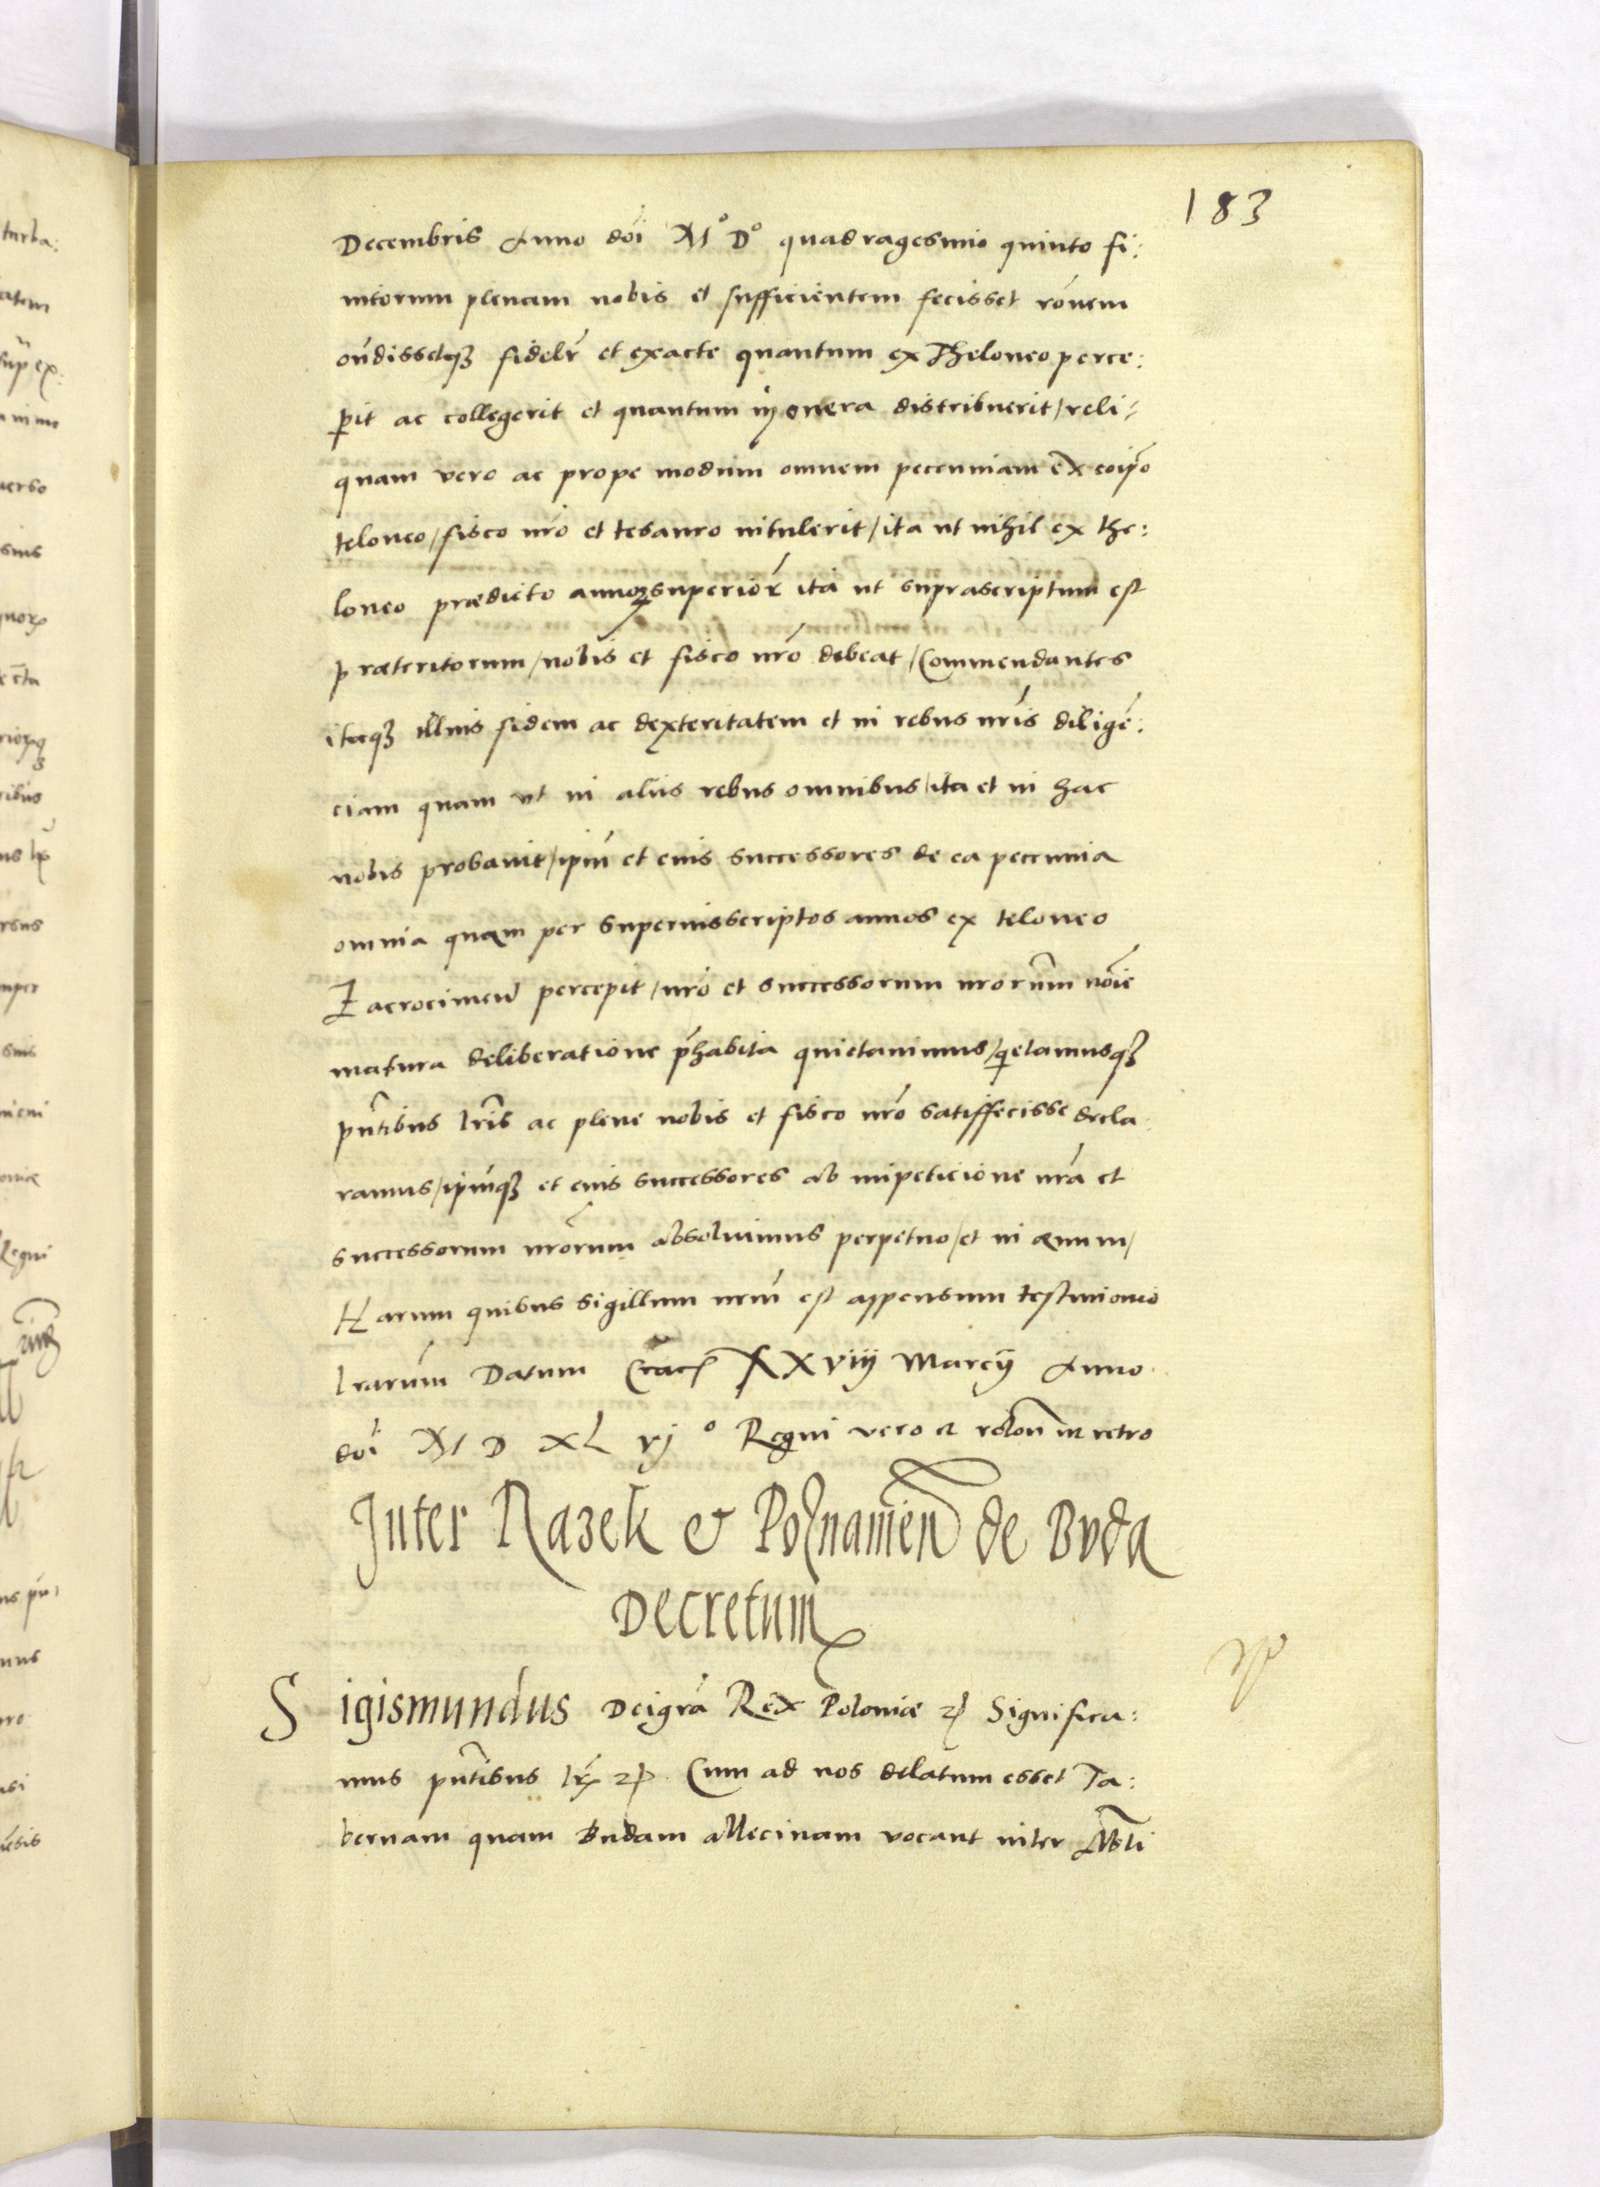 183
Decembris Anno dni M° D° quadragesimo quinto fi:
nitorum plenam nobis et sufficientem fecisset ronem
ondissetq3 fideltr et exacte quantum ex Theloneo perce:
pit ac collegerit et quantum in onera distribuerit / reli:
quam vero ac prope modum omnem peccuniam ex eoipo
teloneo / fisco nro et tesauro intulerit / ita ut nihil ex the:
loneo prædicto annorsuperior ita ut suprascriptum est
præteritorum / nobis et fisco nro debeat / Commendantes
itaq3 illius fidem ac dexteritatem et in rebus nris diligē:
ciam quam ut in aliis rebus omnibus / ita et in hac
nobis probavit / ipm et eius successores de ea peccunia
omnia quam per superiusscriptos annos ex teloneo
Zacrocimen percepit / nro et successorum nrorum noie
matura deliberatione phabita quietavimus / qetamusq3
pntibus lris ac plene nobis et fisco nro satisffecisse decla
ramus / ipmq3 et eius successores ab impeticione nra et
successorum nrorum absolvimus perpetuo / et in ævum /
Harum quibus sigillum nrm est appensum testimonio
lrarum Datum Crac XXviij Marcij Anno
dni M D XL vj° Regni vero et retro
Inter Razek & Poznanien de Buda
Decretum
Sigismundus Deigra Rex Poloniæ Significa:
mus pntibus lr Cum ad nos delatum esset Ta:
bernam quam Budam allecinam vocant inter